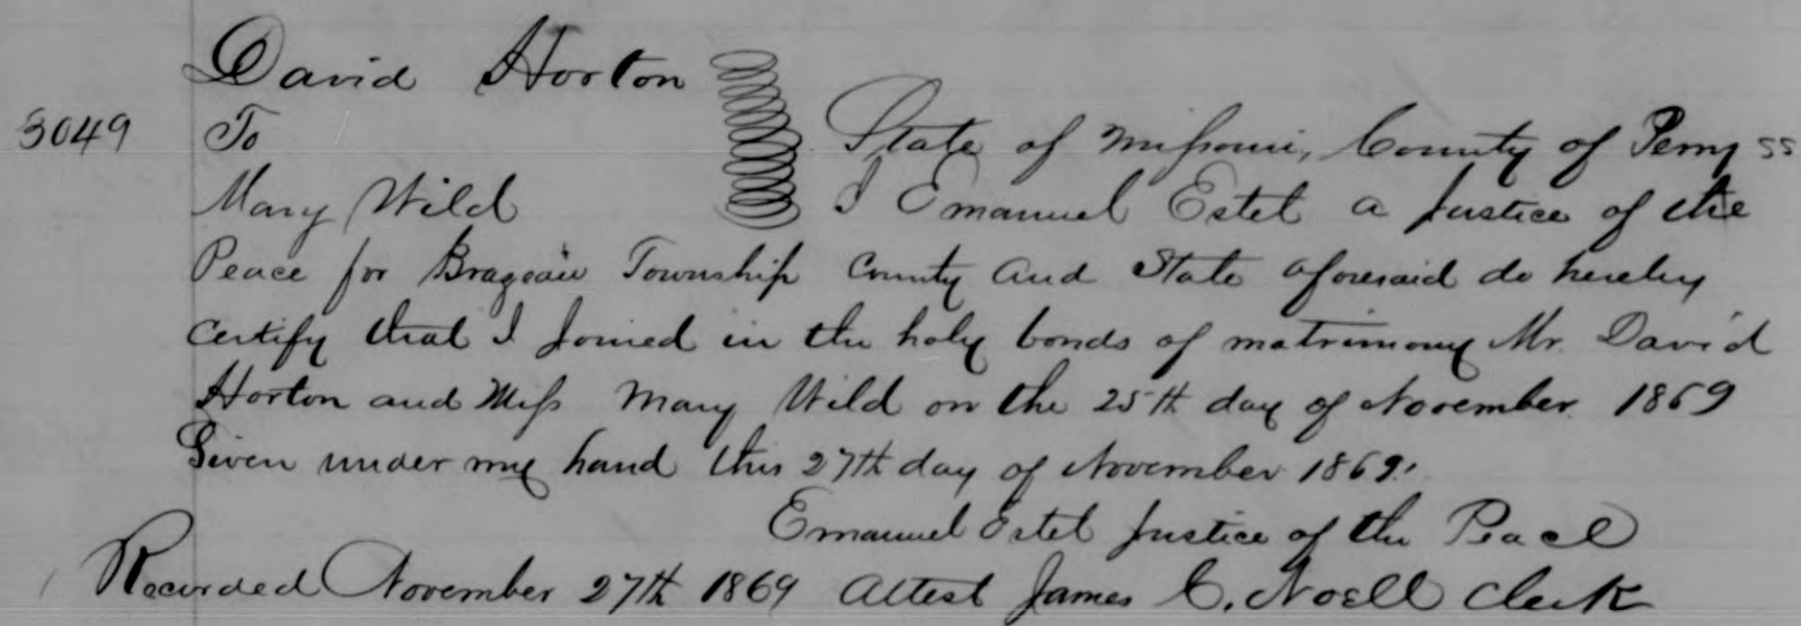 David Horton
3049 To State of Missouri, County of Perry ss
Mary Wild I Emanuel Estel a Justice of the
Peace for Brazeau Township County and State aforesaid do hereby
certify that I Joined in the holy bonds of matrimony Mr. David
Horton and Miss Mary Wild on the 25th day of November 1869
Given under my hand this 27th day of November 1869.
Emanuel Estel Justice of the Peace
Recorded November 27th 1869 Attest James C. Noell Clerk